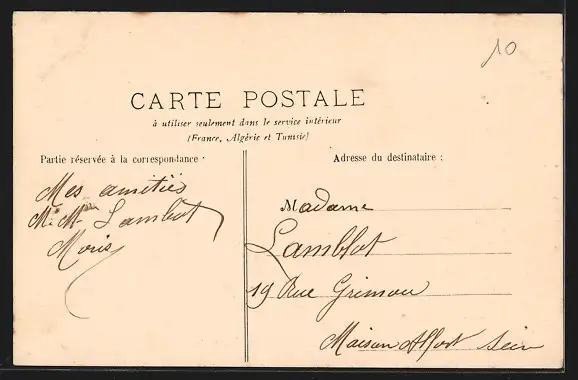 10
CARTE POSTALE
à utiliser seulement dans le service intérieur
(France, Algérie et Tunisie)
Partie réservée à la correspondance
Adresse du destinataire :
Mes amitiés
Lambot
Moris
Madame
Lamblot
19 Rue Grimou
Maison Alfort Sein